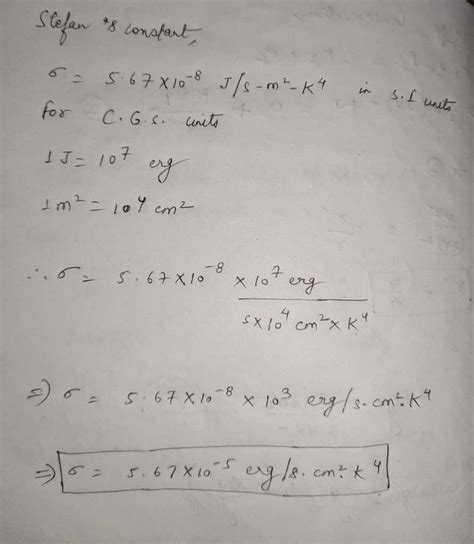 Stefan's constant,
σ = 5.67 × 10⁻⁸ J/s-m²-K⁴ in S.I units
for C.G.S. units
1 J = 10⁷ erg
1 m² = 10⁴ cm²
∴ σ = 5.67 × 10⁻⁸ × 10⁷ erg
s × 10⁴ cm² × K⁴
⇒) σ = 5.67 × 10⁻⁸ × 10³ erg/s.cm².K⁴
⇒ σ = 5.67 × 10⁻⁵ erg/s.cm².K⁴